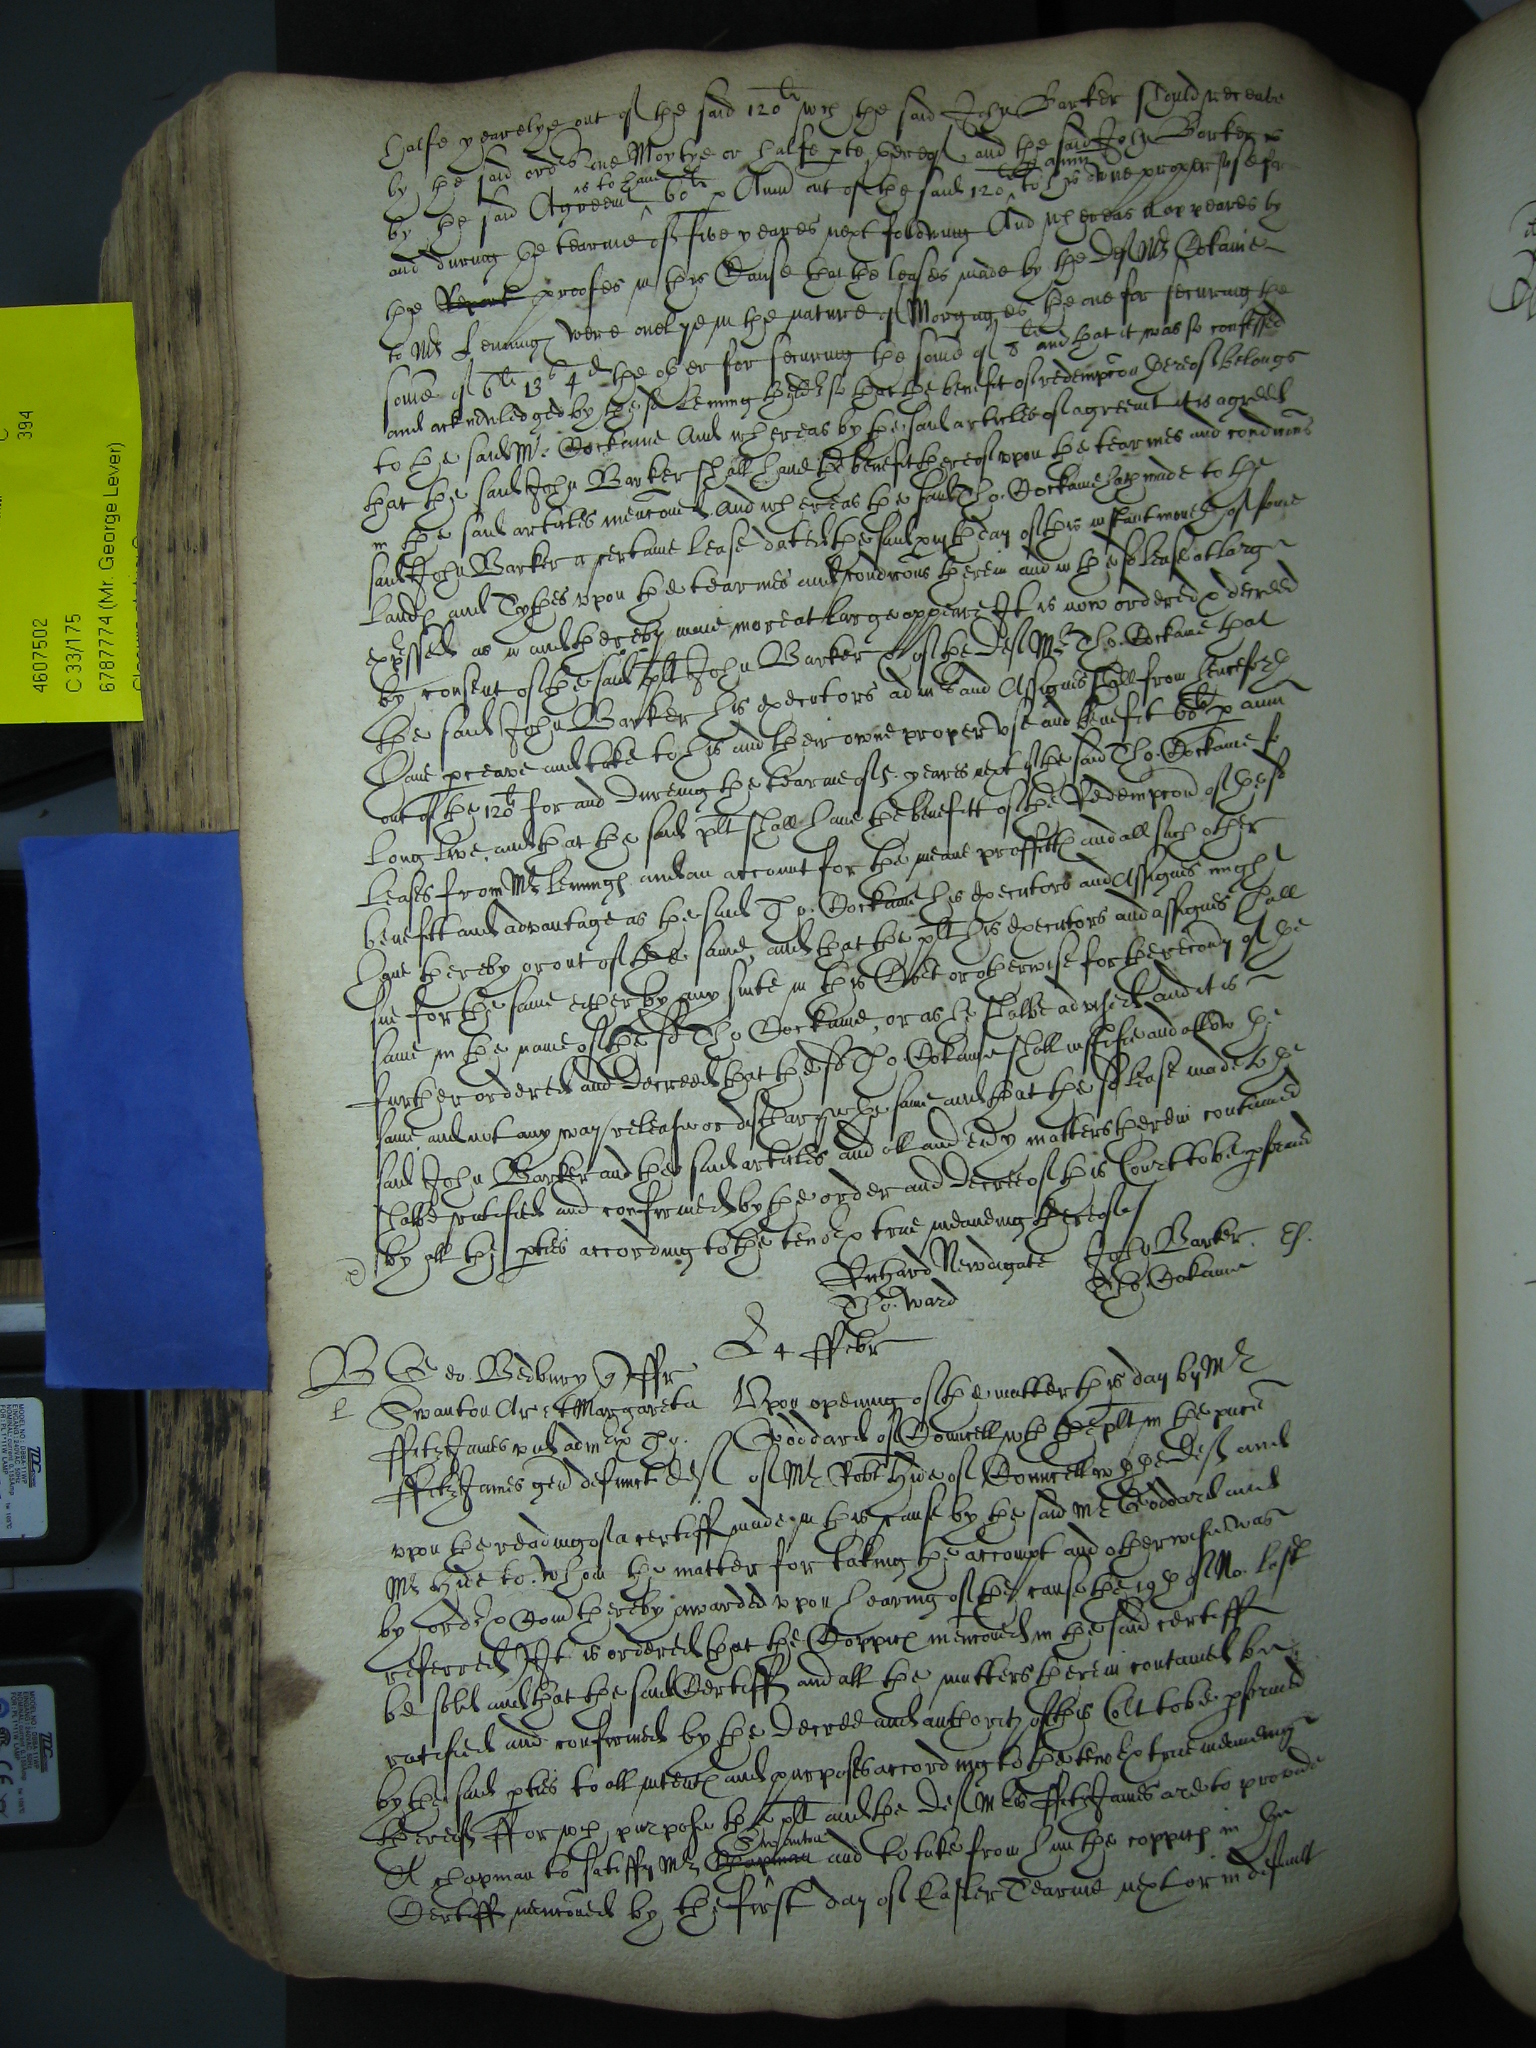 halfe yearelye out of the said 120li wch the said John Barker should receave
by the said order one Moytye or halfe pte thereof and the said John Barker is
by the said Agreemt is to have 60li p Annū out of the said 120li p annū to his owne proper use for
and during the tearme of five yeares next following And whereas it appeares by
the Report proofes in this Cause that the leases made by the Deft Mr Cokaine
to Mr Lenning were onelye in the nature of Morgages the one for securing the
some of 6li 13s 4d the other for securing the some of 8li and that it was so confessed
and acknowledged by the sd Lenning himself so that the benefit of redempcōn thereof belongs
to the said Mr Cockaine And whereas by the said articles of agreemt it is agreed
that the said John Barker shall have the benefit thereof upon the tearmes and condicōns
in the said articles mencōned And whereas the said Tho. Cockaine hath made to the
said John Barker a certaine Lease dated the said day of this instant moneth of some
Lands and Tythes upon the tearmes and condicōns therein and in the sd Lease at large
expressed as in and thereby maie more at large appeare It is now ordered & decreed
by consent of the said plt John Barker & of the Deft Mr Tho. Cockaine that
the said John Barker his executors admrs and Assignes shall from henceforth
have pceave and take to his and their owne proper use and benefit 60li p annū
out of the 120li for and dureing the tearme of 5 yeares next if the said Tho. Cockaine so
long live, and that the said plt shall have the benefitt of the Redempcōn of the sd
Leases from Mr Lenning and an account for the meane proffitts and all such other
benefitt and advantage as the said Tho. Cockaine his executors and Assignes might
have thereby or out of the same, and that the plt his executors and assignes shall
sue for the same either by any suite in this Cort or otherwise for the recovy of the
same in the name of the sd Tho Cockaine, or as he shalbe advised and it is
further ordered and decreed that the sd Tho. Cokaine shall justifie and allow the
same and not any way release or discharge the same and that the sd lease made to the
said John Barker and the said articles and all and evy matters therein contained
shalbe ratified and confirmed by the order and decree of this Court to be pformed
by all the pties according to the tenor & true meaneing thereof
Richard Newdigate John Barker. Ch.
Ro. Ward Tho. Cokaine
4 ffebr
B Geo. Bedbury q ffr
L Swanton Ar et Margareta
ffitzJames vid admx Tho.
ffitzJames gen defuncti deft
Upon opening of the matter this day by Mr
Goddard of Councell wth the plt in the pncē
of Mr Robt Hide of Councell wth the Deft and
upon the reading of a certiff made in this cause by the said Mr Goddard and
Mr Hide to whom the matter for takeing the accompt and otherwise was
by order & Com thereby awarded upon hearing of the cause the 19th of No. last
referred It is ordered that the Coppice mencōned in the said certiff
be sold and that the said Certiff and all the matters therein contained be
ratified and confirmed by the decree and authority of this Cort to be pformed
by the said pties to all intents and purposes according to the tenor & true meaneing
thereof ffor wch purpose the plt and the Deft Mris ffitzJames are to provide
A chapman to satisfy Mr Chapman Swanton and to take from him the coppice in the
Certiff mencōned by the first day of Easter Tearme next or in default
4607502
C 33/175
6787774 (Mr. George Lever)
394